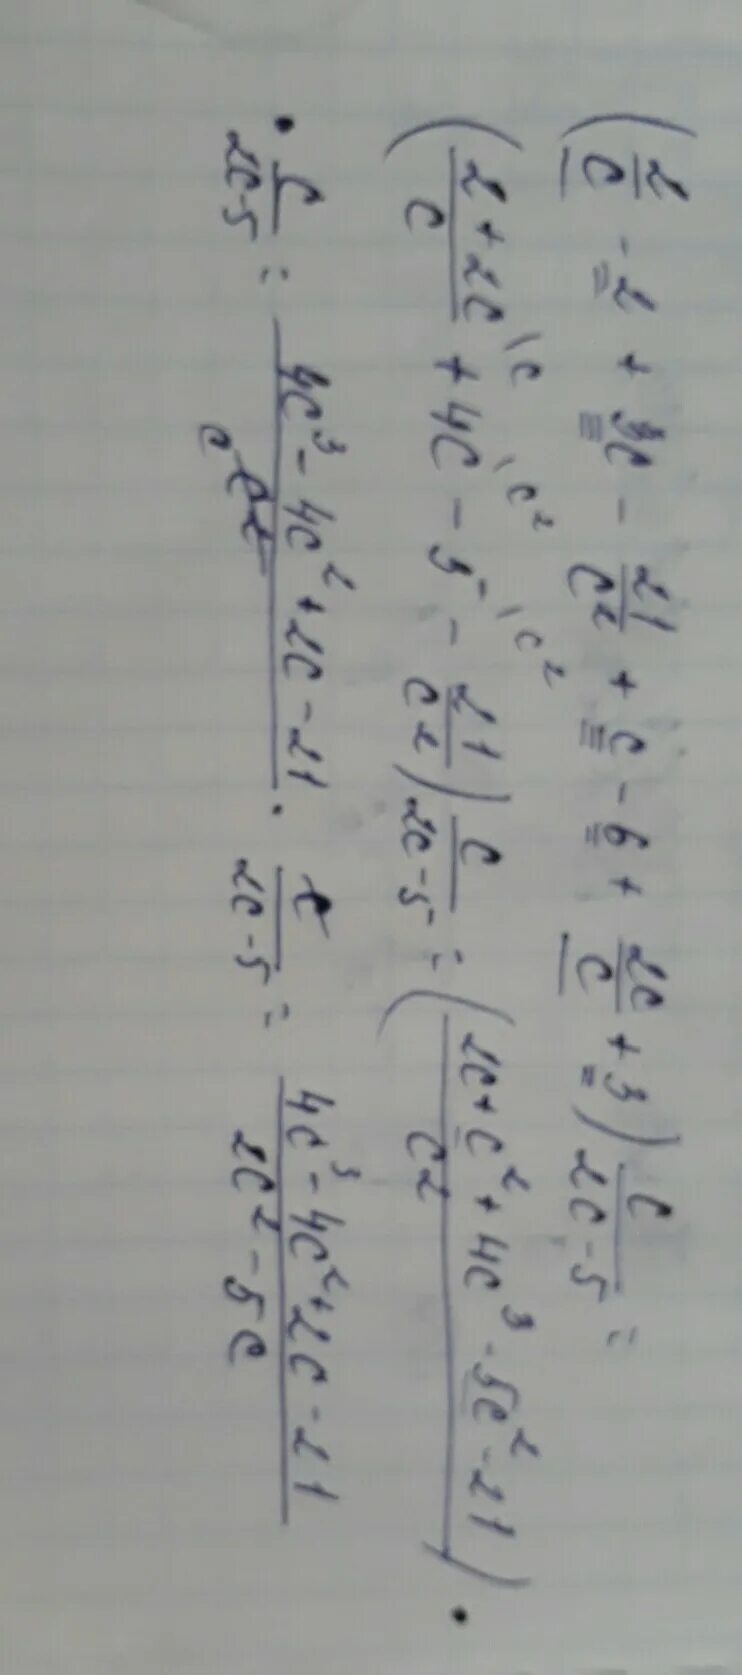 (2/c - 2 + 3c - 21/c² + c - 6 + 2c/c + 3) c/2c-5 =
(2+2c/c \c + 4c \c² - 5 \c² - 21/c²) c/2c-5 = (2c+c²+4c³-5c²-21/c²) ·
· c/2c-5 = 4c³-4c²+2c-21/c c² · c/2c-5 = 4c³-4c²+2c-21/2c²-5c